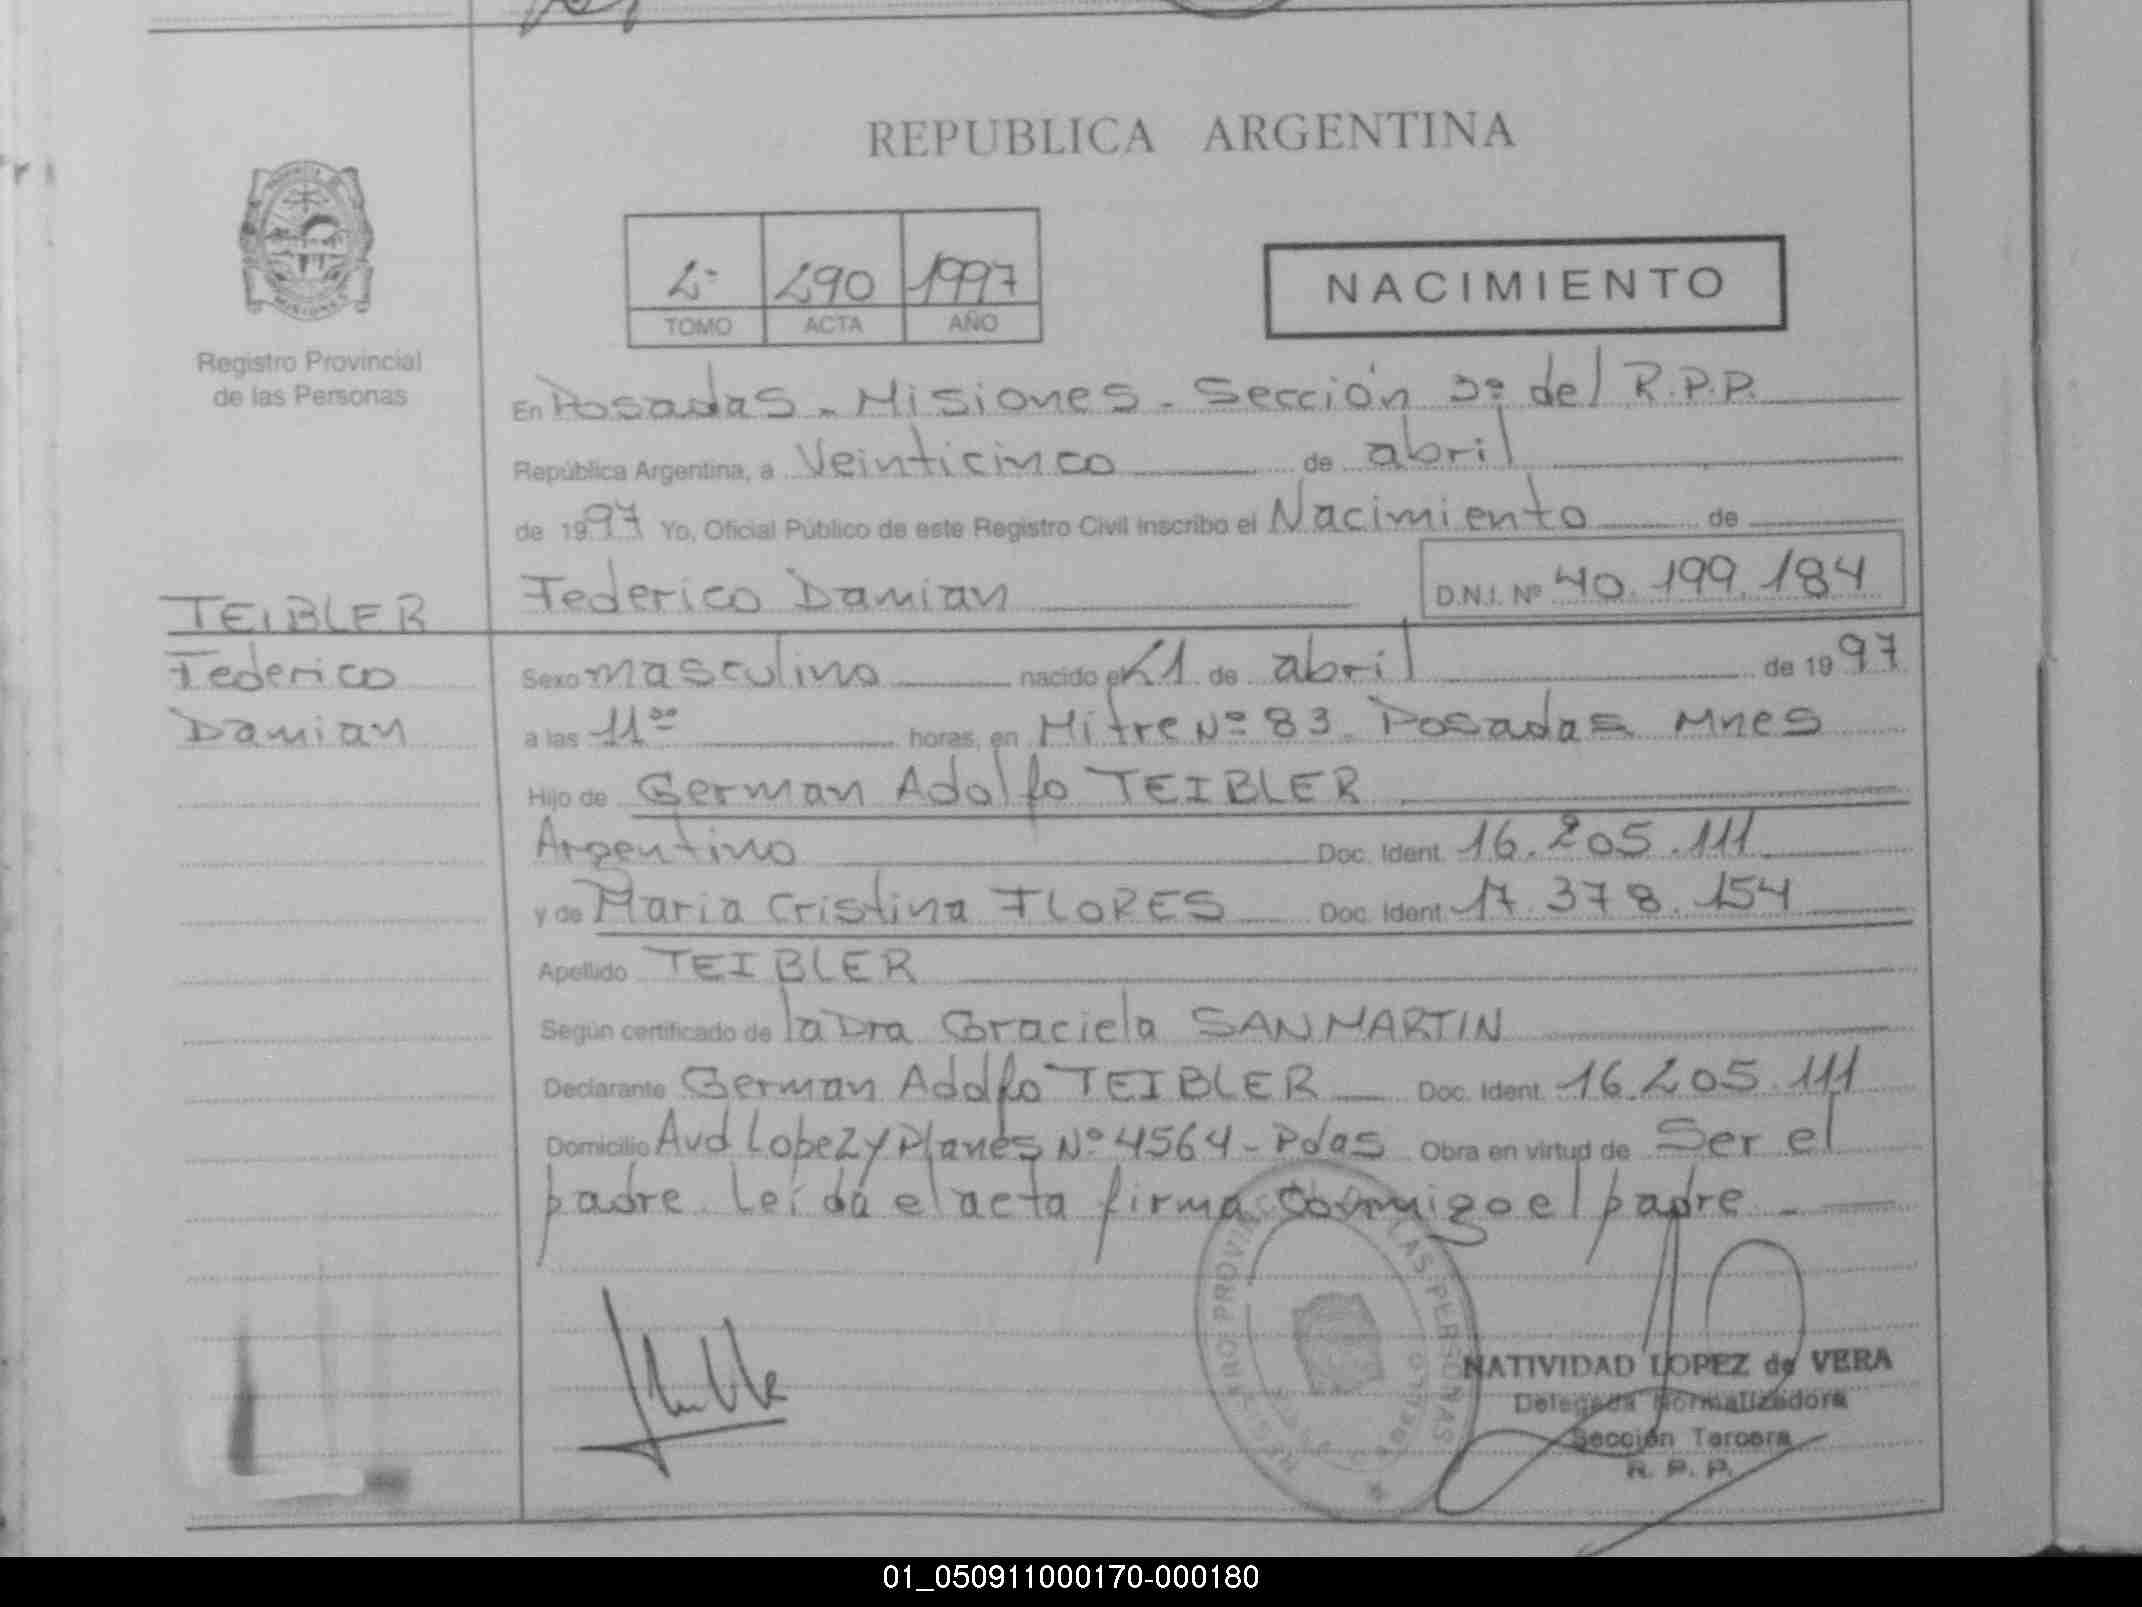 REPUBLICA ARGENTINA
2º 290 1997
TOMO ACTA AÑO
NACIMIENTO
Registro Provincial
de las Personas
En Posadas - Misiones - Sección 3º del R.P.P.
República Argentina, a Veinticinco de abril
de 1997 Yo, Oficial Público de este Registro Civil inscribo el Nacimiento de
Federico Damian D.N.I. Nº 40.199.184
TEIBLER
Federico
Damian
Sexo masculino nacido el 21 de abril de 1997
a las 11⁰⁰ horas, en Mitre Nº 83 Posadas Mnes
Hijo de German Adolfo TEIBLER
Argentino Doc. Ident. 16.205.111
y de Maria Cristina FLORES Doc. Ident. 17.378.154
Apellido TEIBLER
Según certificado de la Dra Graciela SANMARTIN
Declarante German Adolfo TEIBLER Doc. Ident. 16.205.111
Domicilio Avd Lopez y Planes Nº 4564 - Pdas Obra en virtud de Ser el
padre. Leída el acta firma conmigo el padre -
NATIVIDAD LOPEZ de VERA
Delegada Normalizadora
Sección Tercera
R. P. P.
01_050911000170-000180